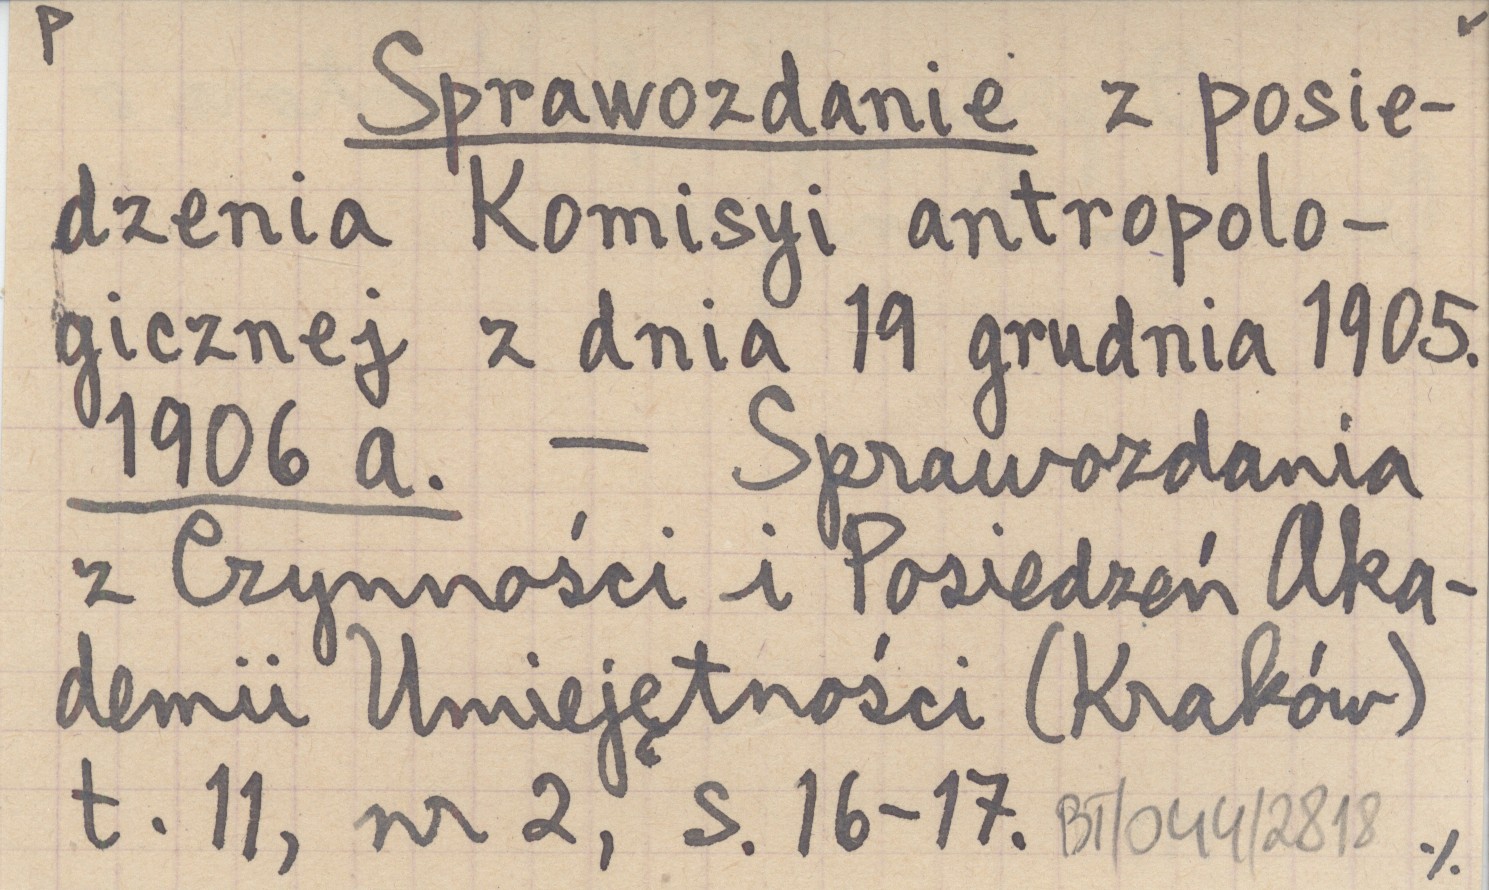 P
Sprawozdanie z posie-
dzenia Komisyi antropolo-
gicznej z dnia 19 grudnia 1905.
1906 a. — Sprawozdania
z Czynności i Posiedzeń Aka-
demii Umiejętności (Kraków)
t. 11, nr 2, s. 16-17. BT/044/2818 ·/.